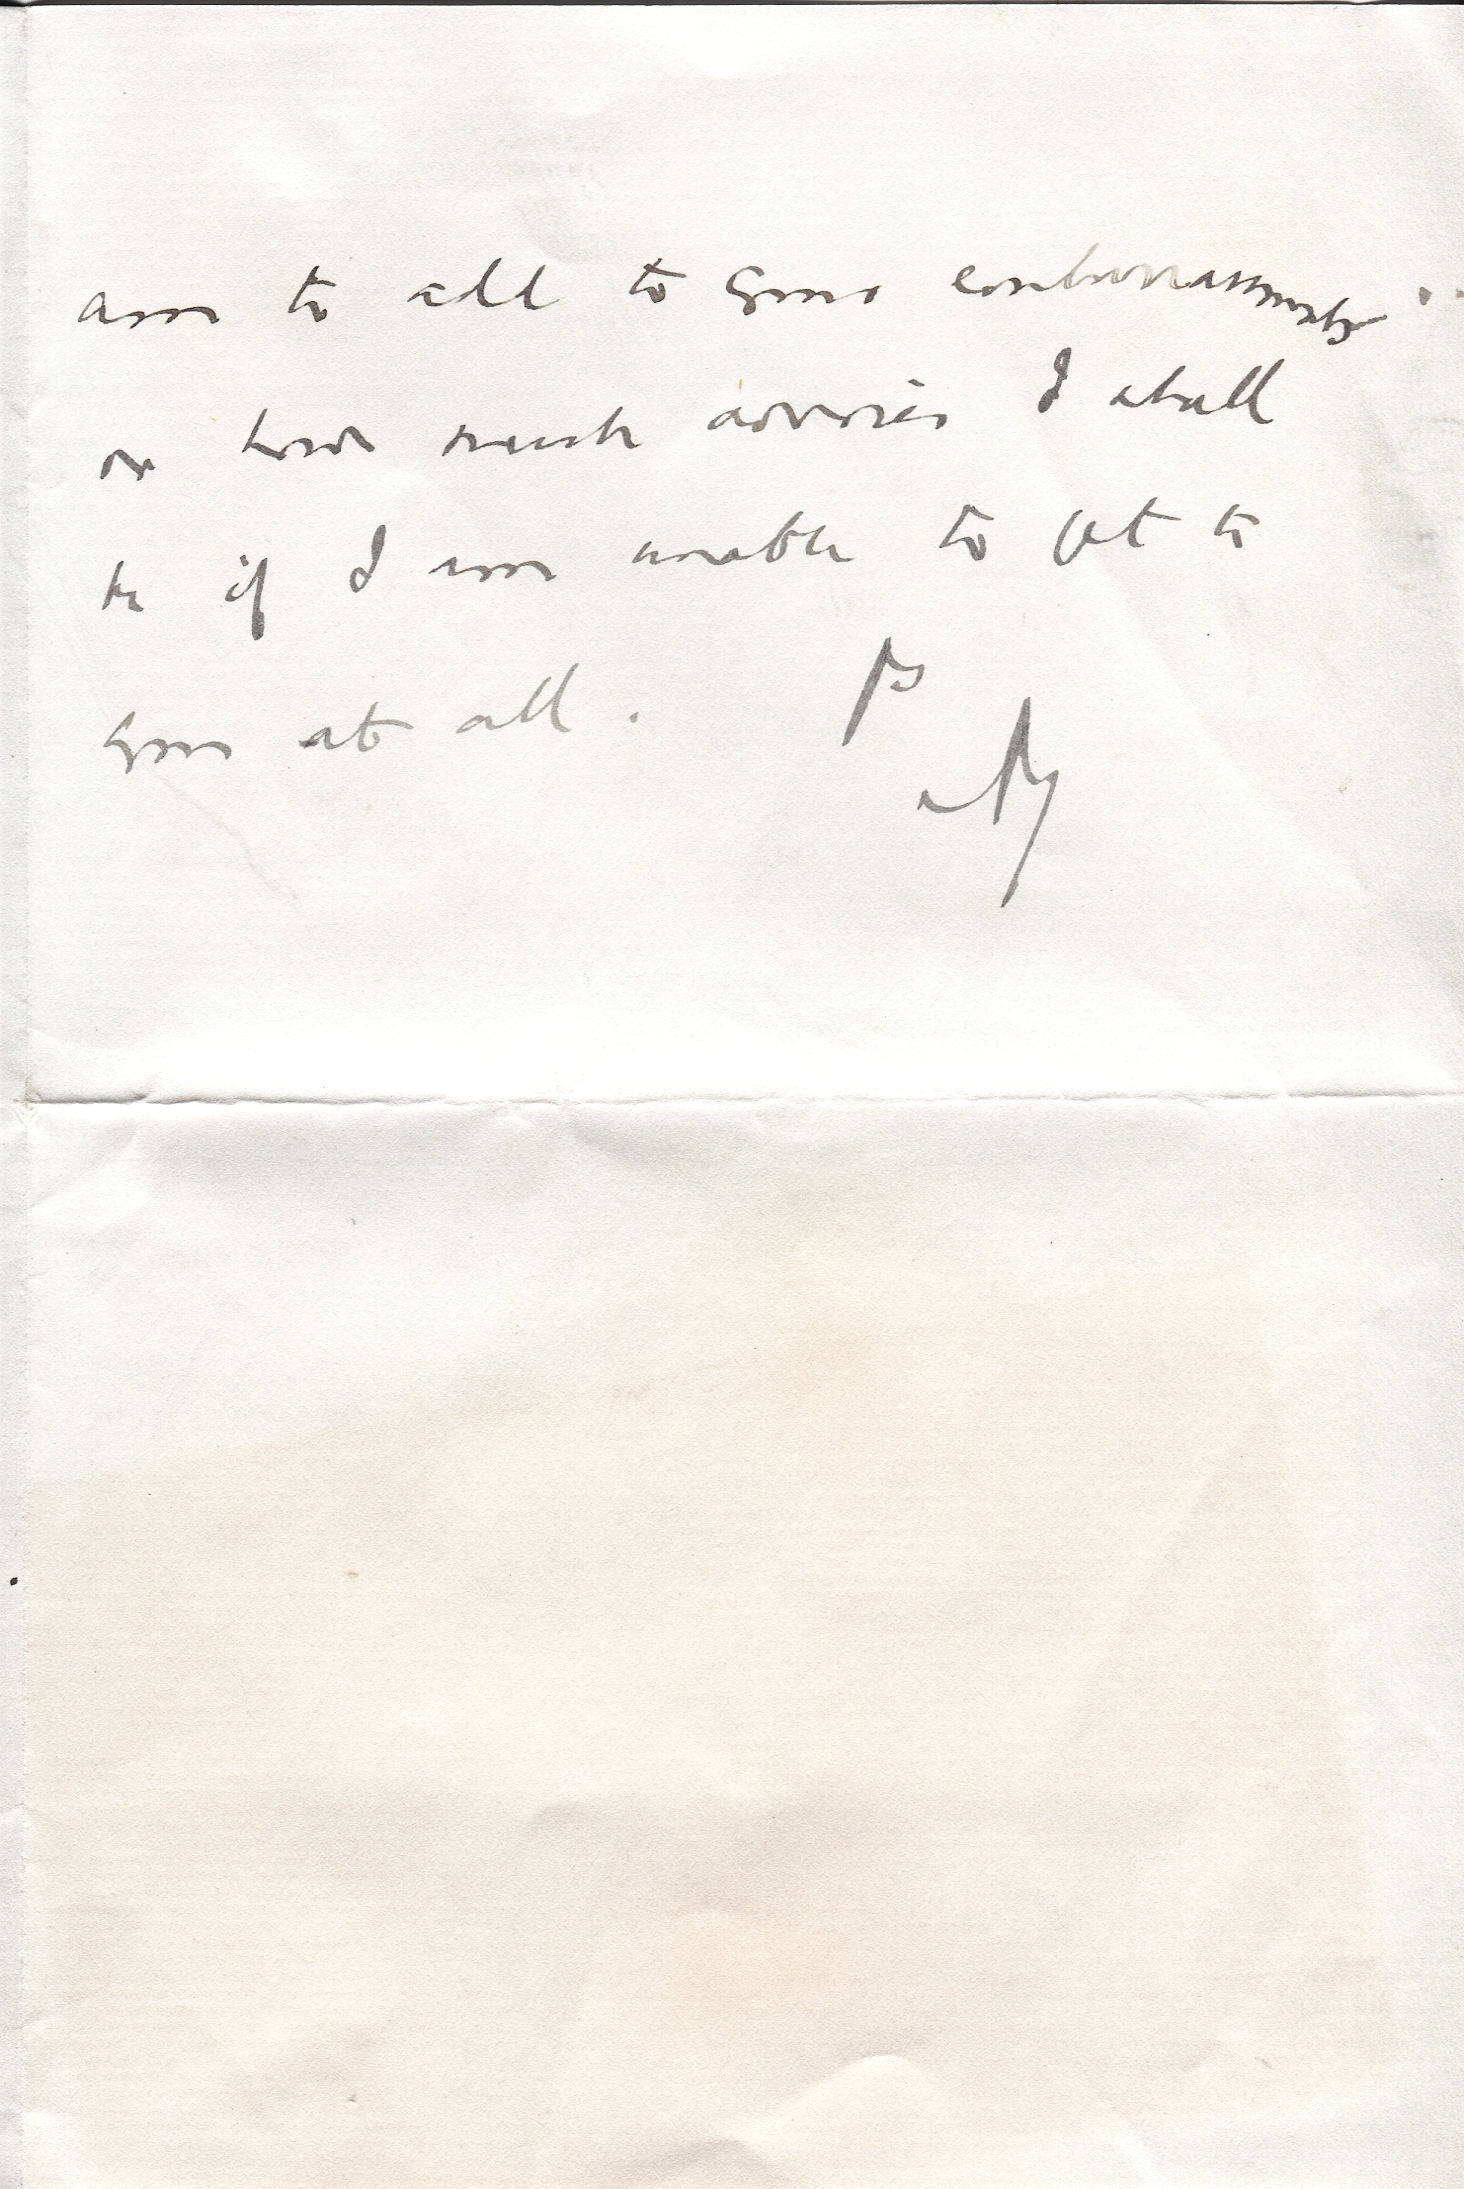 am to add to your embarrassments
or how much annoyed I shall
be if I am unable to get to
you at all.